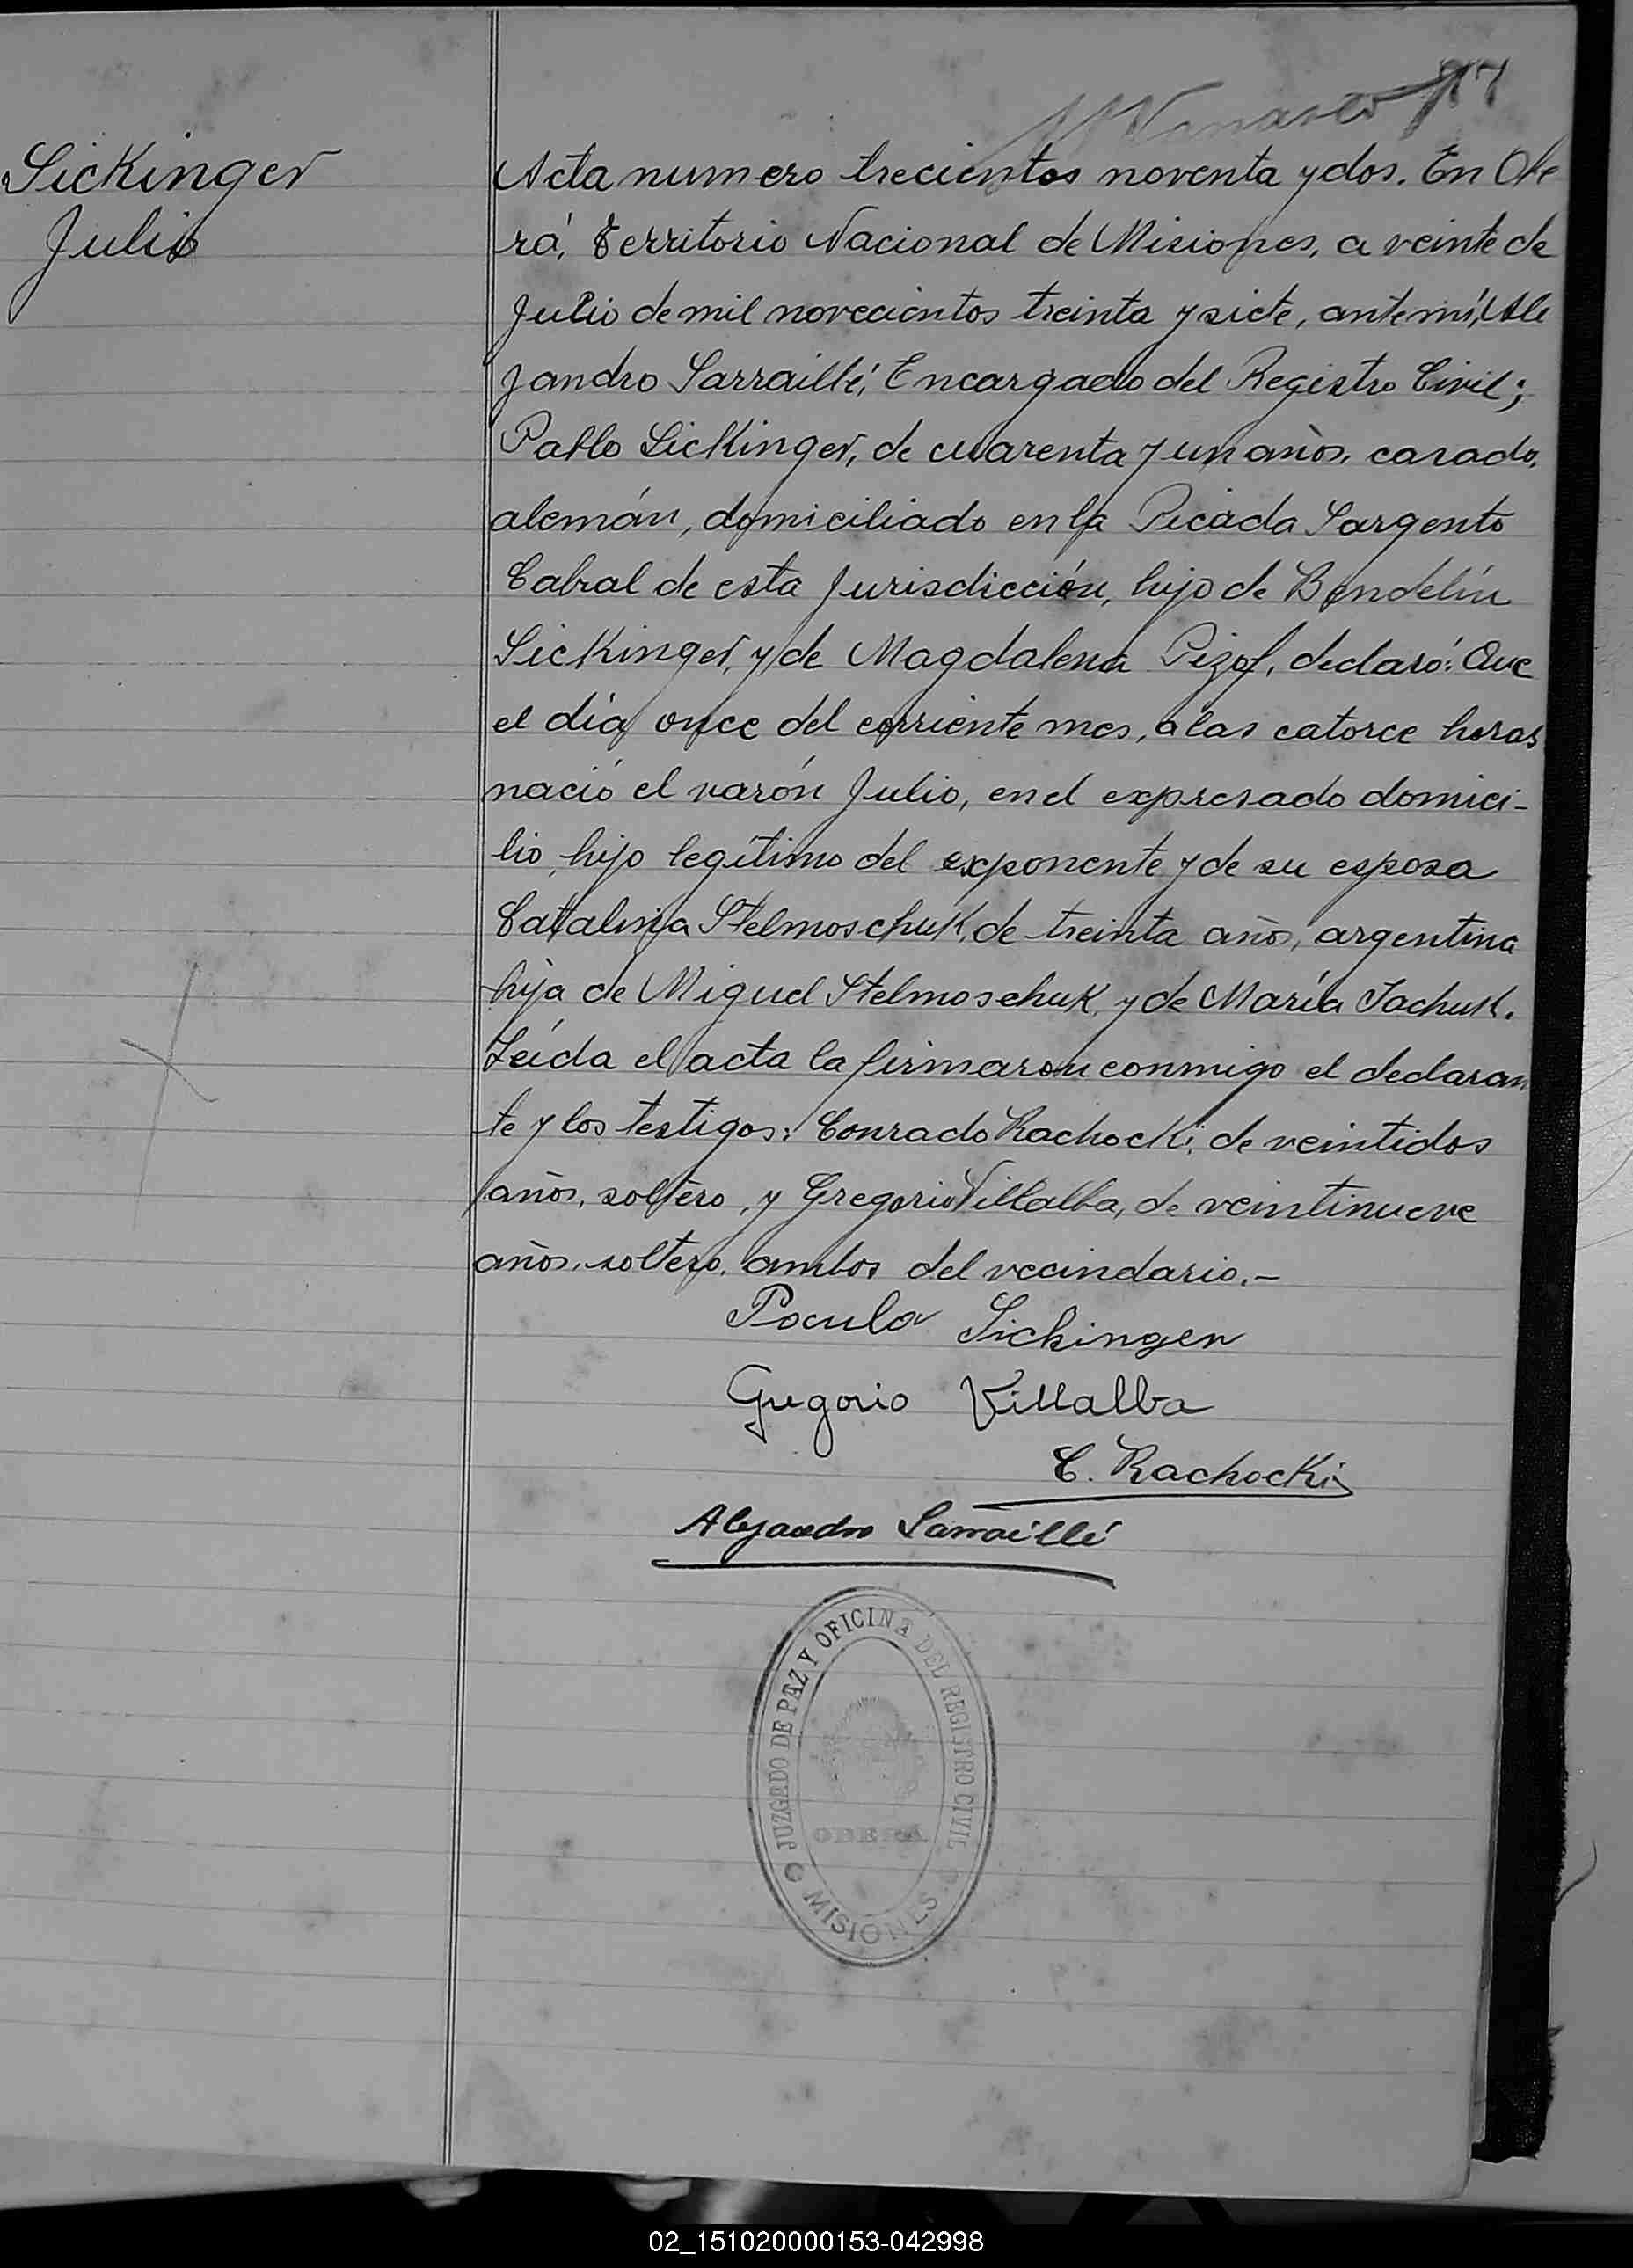 97
Sickinger
Julio
Acta numero trecientos noventa y dos. En Obe
rá, Territorio Nacional de Misiones, a veinte de
Julio de mil novecientos treinta y siete, ante mí, Ale
jandro Sarraillé, Encargado del Registro Civil;
Pablo Sickinger, de cuarenta y un años, casado,
alemán, domiciliado en la Picada Sargento
Cabral de esta Jurisdicción, hijo de Bendelín
Sickinger, y de Magdalena Pizof, declaró: Que
el día once del corriente mes, a las catorce horas
nació el varón Julio, en el expresado domici-
lio, hijo legítimo del exponente y de su esposa
Catalina Stelmoschuk, de treinta años, argentina
hija de Miguel Stelmoschuk, y de María Jachuk.
Leída el acta la firmaron conmigo el declaran
te y los testigos: Conrado Rachocki, de veintidos
años, soltero, y Gregorio Villalba, de veintinueve
años, soltero, ambos del vecindario.-
Sickinger
Gregorio Villalba
C. Rachocki
Alejandro Sarraillé
JUZGADO DE PAZ Y OFICINA DEL REGISTRO CIVIL
OBERÁ
MISIONES
02_151020000153-042998